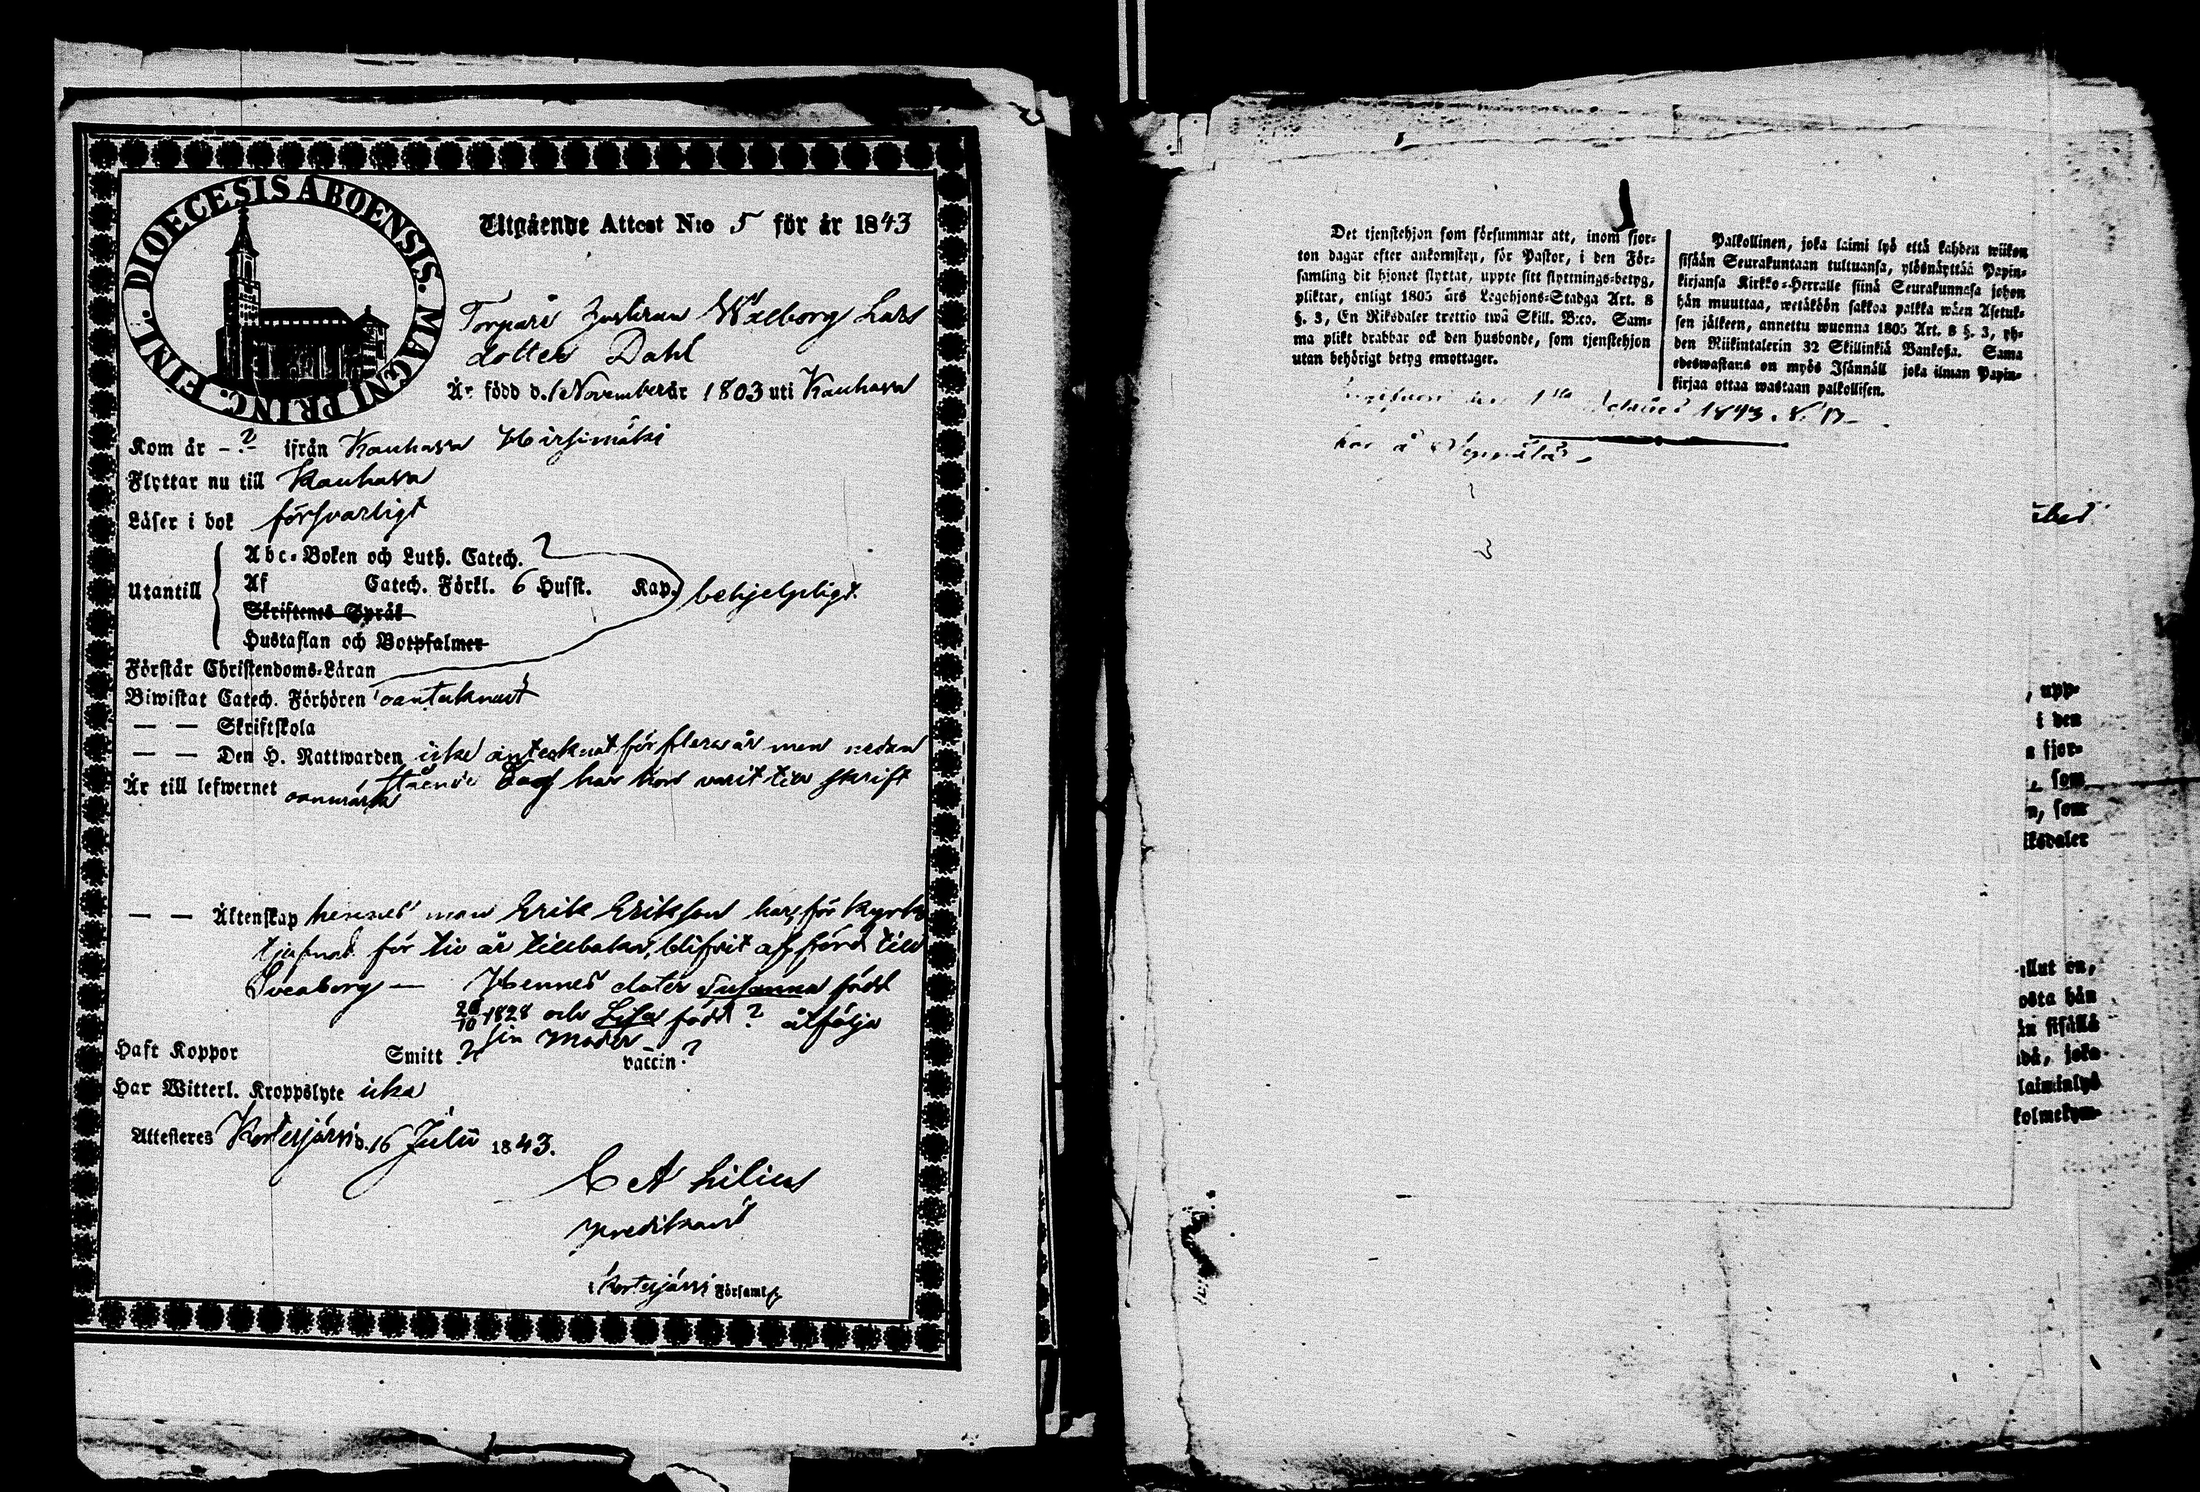 DIOECESIS ABOENSIS. MAGNI PRINC. FINL.
Utgående Attest N:o 5 för år 1843
Torpare hustrun Walborg Lars
dotter Dahl
Är född d. 1 November år 1803 uti Kauhava
Kom år - ? - ifrån Kauhava Hirsimäki
Flyttar nu till Kauhava
Läser i bok försvarligt
Utantill
Abc-Boken och Luth. Catech.
Af Catech. Förkl. 6 Husst. Kap. behjelpligt
Skriftenes Språk
Hustaflan och Botpsalmer
Förstår Christendoms-Läran
Biwistat Catech. Förhören oantecknadt
— — Skriftskola
— — Den H. Nattwarden icke antecknat för flera år men nedan
stående dag har hon varit till skrift
Är till lefwernet oanmärkt
— — Äktenskap hennes man Erik Erikson har för kyrk
tjufnad för tio år tillbaka, blifvit afförd till
Sveaborg — Hennes doter Susanna född
28/10 1828 och Lisa född ? åtfölja
sin Moder
Haft Koppor Smitt ? vaccin ?
Har Witterl. Kroppslyte icke
Attesteres Kortesjärvi d. 16 Julii 1843.
C A Lilius
predikant
Kortesjärvi Församl.
Det tjenstehjon som försummar att, inom fjor-
ton dagar efter ankomsten, för Pastor, i den För-
samling dit hjonet flyttat, uppte sitt flyttnings-betyg,
pliktar, enligt 1805 års Legohjons-Stadga Art. 8
§. 3, En Riksdaler trettio twå Skill. B:co. Sam-
ma plikt drabbar ock den husbonde, som tjenstehjon
utan behörigt betyg emottager.
Palkollinen, joka laimi lyö että kahden wiikon
sisään Seurakuntaan tultuansa, ylösnäyttää Papin-
kirjansa Kirkko-Herralle siinä Seurakunnasa johon
hän muuttaa, wetäköön sakkoa palkka wäen Asetuk-
sen jälkeen, annettu wuonna 1805 Art. 8 §. 3, yh-
den Riikintalerin 32 Skillinkiä Bankosa. Sama
edeswastaus on myös Isännäll joka ilman Papin-
kirjaa ottaa wastaan palkollisen.
den 1sta 1843.
har å
, upp-
i den
a fjor-
som
n, som
iksdaler
allut on,
osta hän
än sisällä
joka
laiminlyö
kolmekym-